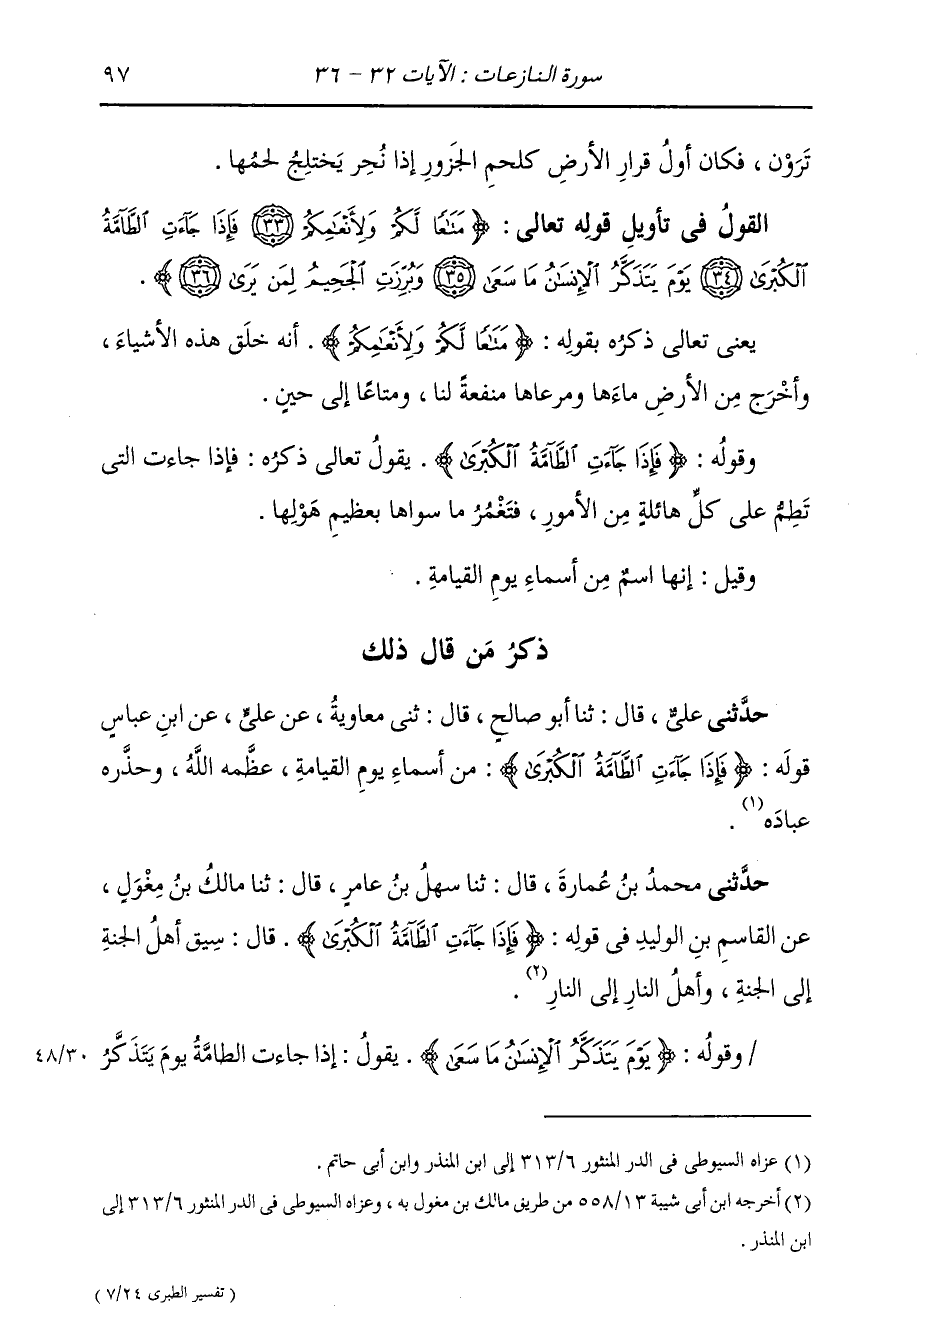 سورة النازعات : الآيات ٣٢ - ٣٦ ٩٧
تَرَوْن ، فكان أولُ قرارِ الأرضِ كلحمِ الجَزورِ إذا نُحِر يَختلِجُ لحمُها .
القولُ فى تأويلِ قولِه تعالى : ﴿ مَتَٰعًا لَّكُمْ وَلِأَنْعَٰمِكُمْ ﴿٣٣﴾ فَإِذَا جَآءَتِ ٱلطَّآمَّةُ
ٱلْكُبْرَىٰ ﴿٣٤﴾ يَوْمَ يَتَذَكَّرُ ٱلْإِنسَٰنُ مَا سَعَىٰ ﴿٣٥﴾ وَبُرِّزَتِ ٱلْجَحِيمُ لِمَن يَرَىٰ ﴿٣٦﴾ ﴾ .
يعنى تعالى ذكرُه بقولِه : ﴿ مَتَٰعًا لَّكُمْ وَلِأَنْعَٰمِكُمْ ﴾ . أنه خلَق هذه الأشياءَ ،
وأخْرَج مِن الأرضِ ماءَها ومرعاها منفعةً لنا ، ومتاعًا إلى حينٍ .
وقولُه : ﴿ فَإِذَا جَآءَتِ ٱلطَّآمَّةُ ٱلْكُبْرَىٰ ﴾ . يقولُ تعالى ذكرُه : فإذا جاءت التى
تَطِمُّ على كلِّ هائلةٍ مِن الأمورِ ، فتَغْمُرُ ما سواها بعظيمِ هَوْلِها .
وقيل : إنها اسمٌ مِن أسماءِ يومِ القيامةِ .
ذكرُ مَن قال ذلك
حدَّثنى علىٌّ ، قال : ثنا أبو صالحٍ ، قال : ثنى معاويةُ ، عن علىٍّ ، عن ابنِ عباسٍ
قولَه : ﴿ فَإِذَا جَآءَتِ ٱلطَّآمَّةُ ٱلْكُبْرَىٰ ﴾ : من أسماءِ يومِ القيامةِ ، عظَّمه اللَّهُ ، وحذَّره
عبادَه (١) .
حدَّثنى محمدُ بنُ عُمارةَ ، قال : ثنا سهلُ بنُ عامرٍ ، قال : ثنا مالكُ بنُ مِغْوَلٍ ،
عن القاسمِ بنِ الوليدِ فى قولِه : ﴿ فَإِذَا جَآءَتِ ٱلطَّآمَّةُ ٱلْكُبْرَىٰ ﴾ . قال : سِيق أهلُ الجنةِ
إلى الجنةِ ، وأهلُ النارِ إلى النارِ (٢) .
/ وقولُه : ﴿ يَوْمَ يَتَذَكَّرُ ٱلْإِنسَٰنُ مَا سَعَىٰ ﴾ . يقولُ : إذا جاءت الطامَّةُ يومَ يَتَذَكَّرُ ٤٨/٣٠
(١) عزاه السيوطى فى الدر المنثور ٣١٣/٦ إلى ابن المنذر وابن أبى حاتم .
(٢) أخرجه ابن أبى شيبة ٥٥٨/١٣ من طريق مالك بن مغول به ، وعزاه السيوطى فى الدر المنثور ٣١٣/٦ إلى
ابن المنذر .
( تفسير الطبرى ٧/٢٤ )